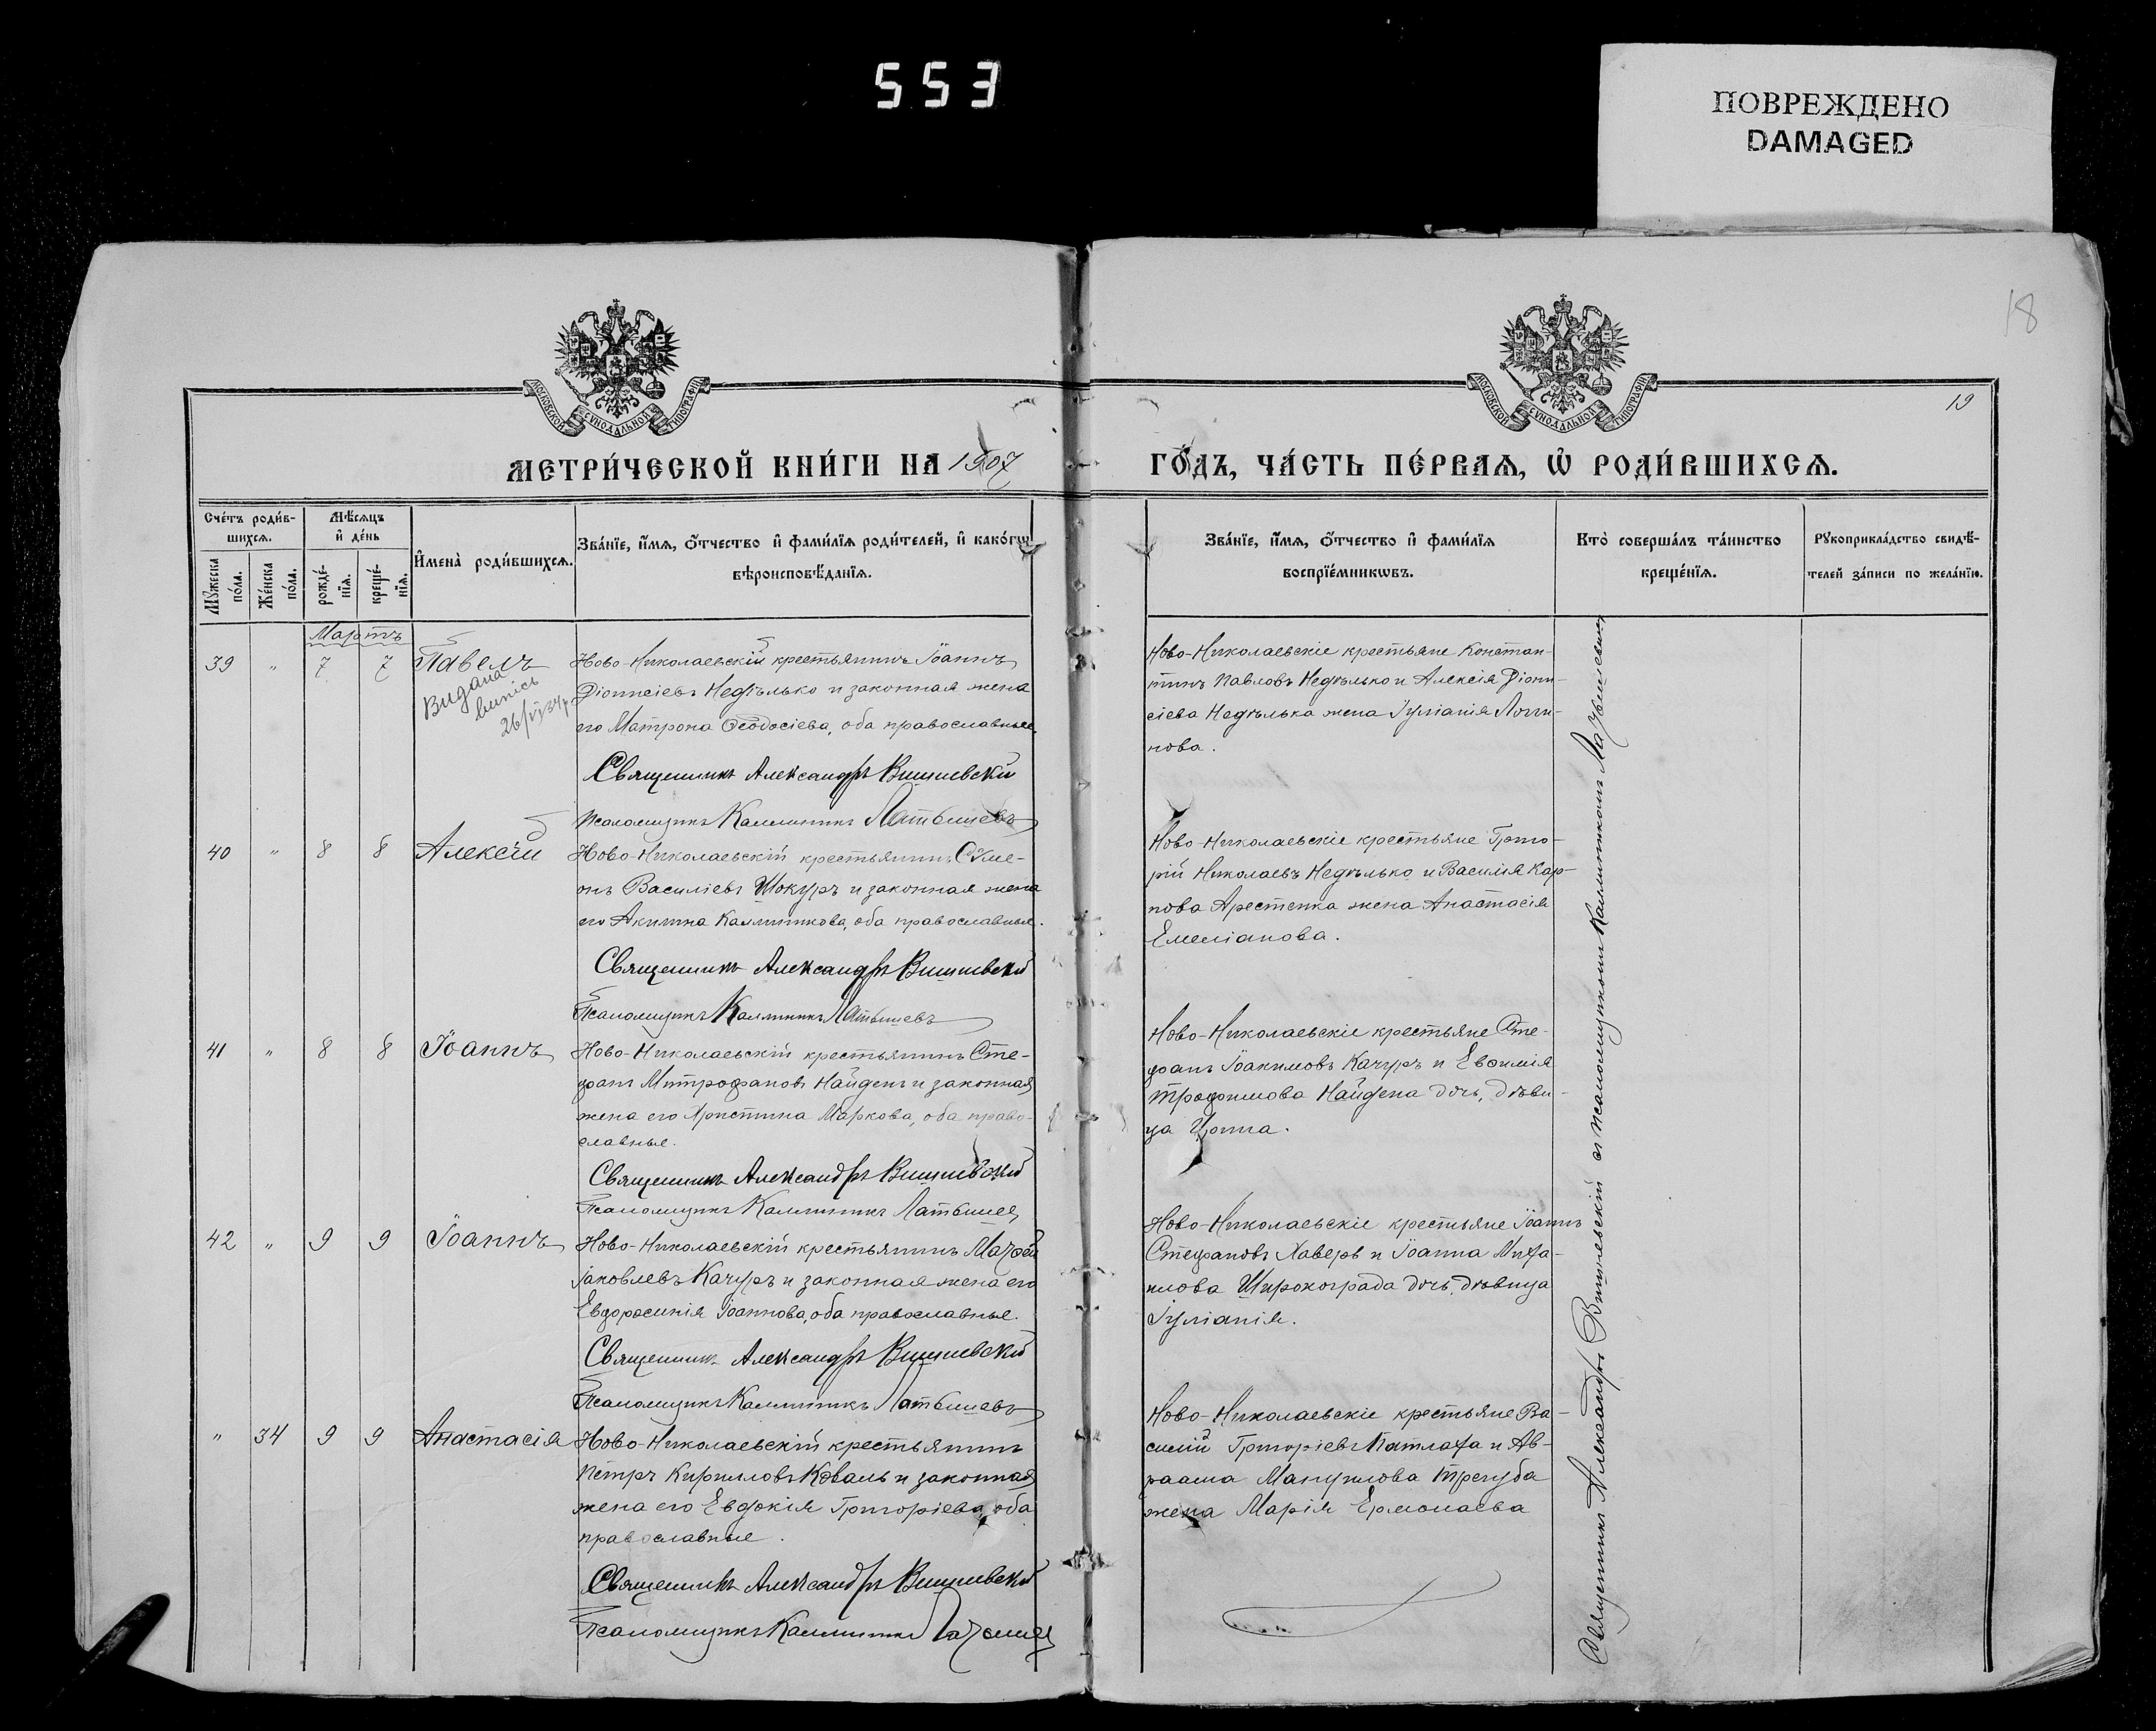 553
ПОВРЕЖДЕНО
DAMAGED
18
МОСКОВСКОЙ СѴНОДАЛЬНОЙ ТИПОГРАФІИ
МОСКОВСКОЙ СѴНОДАЛЬНОЙ ТИПОГРАФІИ
19
МЕТРИ́ЧЕСКОЙ КНИ́ГИ НА 1907
ГО́ДЪ, ЧА́СТЬ ПЕ́РВАѦ, Ѡ҆ РОДИ́ВШИХСѦ.
Сче́тъ роди́в-
шихсѧ.
Мꙋ́жеска по́ла.
Же́нска по́ла.
Мѣ́сѧцъ
и҆ де́нь
рожде́-
нїѧ.
креще́-
нїѧ.
И҆мена̀ роди́вшихсѧ.
Зва́нїе, и҆́мѧ, ѻ҆́тчество и҆ фами́лїѧ роди́телей, и҆ како́гѡ
вѣроисповѣ́данїѧ.
Зва́нїе, и҆́мѧ, ѻ҆́тчество и҆ фами́лїѧ
воспрїе́мникѡвъ.
Кто̀ соверша́лъ та́инство
креще́нїѧ.
Рꙋкоприкла́дство свидѣ́-
телей за́писи по жела́нїю.
Мартъ
39 " 7 7 Павелъ
Видана
випись
26/VI 34 р
Ново-Николаевскій крестьянинъ Іоаннъ
Діонисіевъ Недѣлько и законная жена
его Матрона Ѳеодосіева, оба православные.
Священникъ Александръ Вишневскій
Псаломщикъ Каллиникъ Латышевъ
Ново-Николаевскіе крестьяне Констан-
тинъ Павловъ Недѣлько и Алексія Діони-
сіева Недѣлька жена Іуліанія Логги-
нова.
40 " 8 8 Алексій
Ново-Николаевскій крестьянинъ Сѵме-
онъ Василіевъ Шокуръ и законная жена
его Акилина Каллиникова, оба православные.
Священникъ Александръ Вишневскій
Псаломщикъ Каллиникъ Латышевъ
Ново-Николаевскіе крестьяне Григо-
рій Николаевъ Недѣлько и Василія Кар-
пова Арестенка жена Анастасія
Емеліанова.
41 " 8 8 Іоаннъ
Ново-Николаевскій крестьянинъ Сте-
фанъ Митрофановъ Найденъ и законная
жена его Христина Маркова, оба право-
славные.
Священникъ Александръ Вишневскій
Псаломщикъ Каллиникъ Латышев
Ново-Николаевскіе крестьяне Сте-
фанъ Іоакимовъ Качуръ и Евѳимія
Трофимова Найдена дочь, дѣви-
ца
42 " 9 9 Іоаннъ
Ново-Николаевскій крестьянинъ Матѳей
Іаковлевъ Качуръ и законная жена его
Евфросинія Іоаннова, оба православные.
Священникъ Александръ Вишневскій
Псаломщикъ Каллиникъ Латышевъ
Ново-Николаевскіе крестьяне Іоаннъ
Стефановъ Хаверъ и Іоанна Миха-
илова Широкограда дочь, дѣвица
Іуліанія.
" 34 9 9 Анастасія
Ново-Николаевскій крестьянинъ
Петръ Кирилловъ Коваль и законная
жена его Евдокія Григоріева, оба
православные.
Священникъ Александръ Вишневскій
Псаломщикъ Каллиникъ Латышев
Ново-Николаевскіе крестьяне Ва-
силій Григоріевъ Патлаха и Ав-
раама Мануилова Трегуба
жена Марія Ермолаева
Священникъ Александръ Вишневскій съ псаломщикомъ Каллиникомъ Латышевымъ